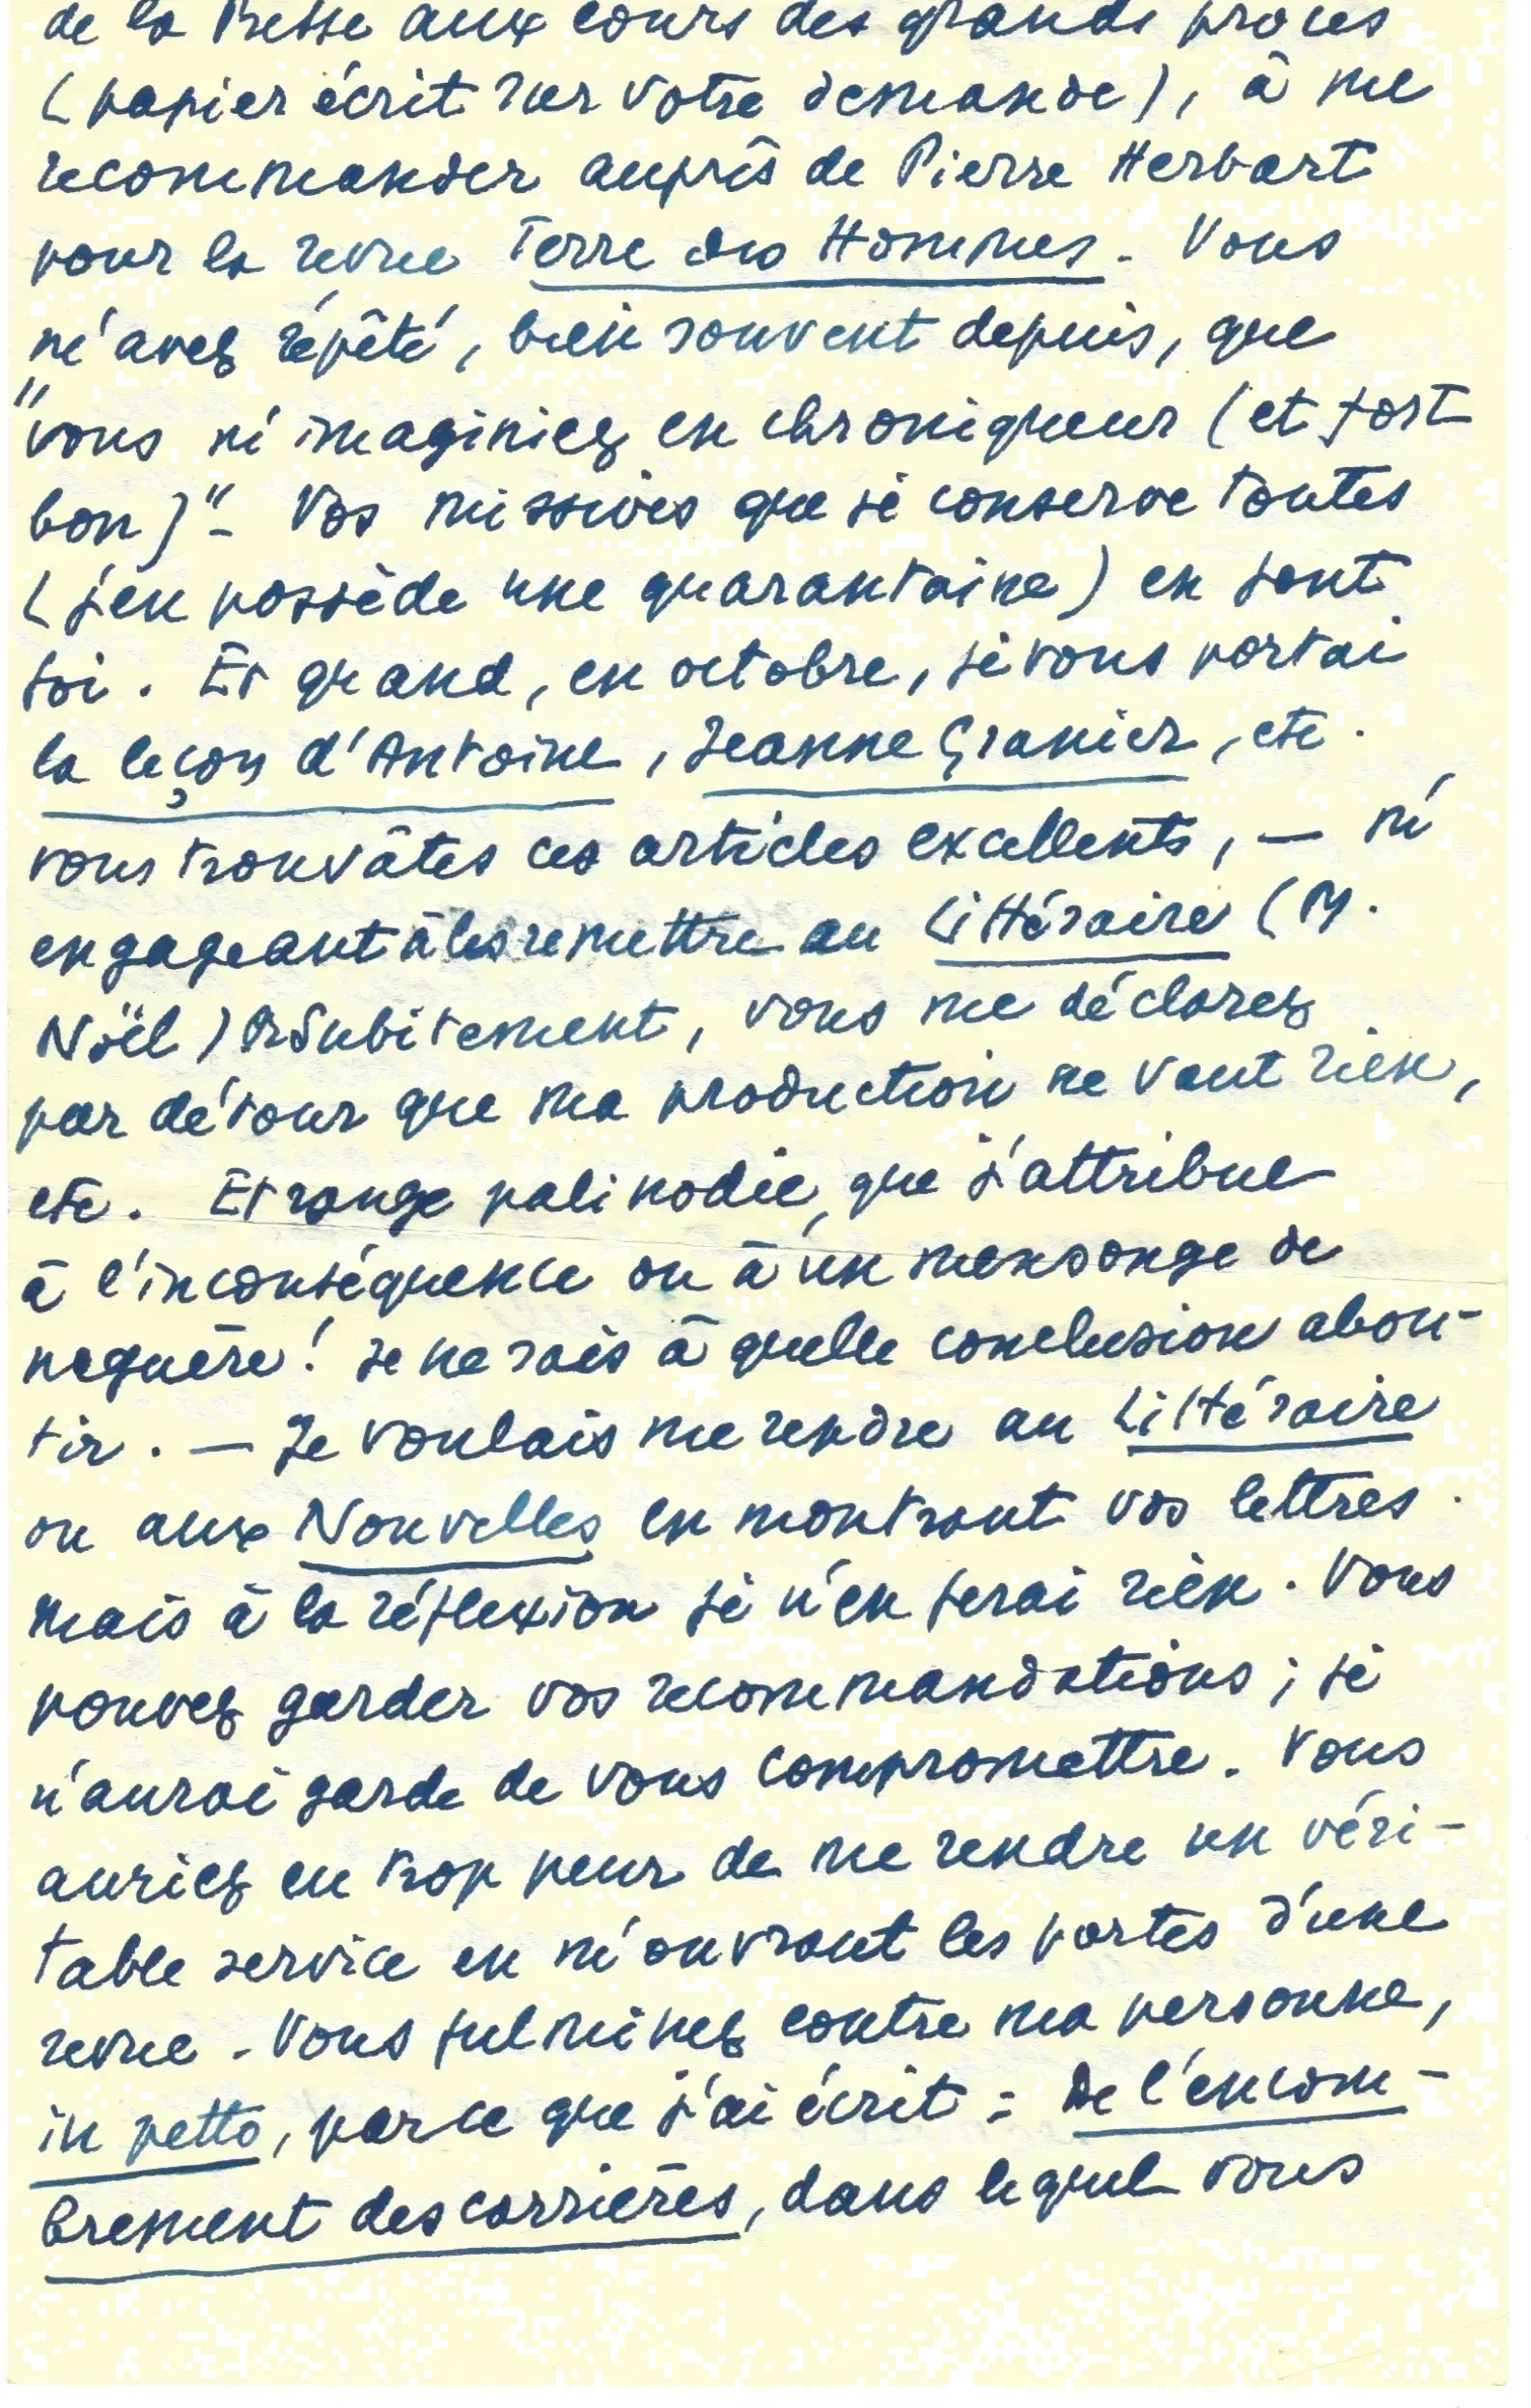 de la Presse aux cours des grands procès
(papier écrit sur votre demande), à me
recommander auprès de Pierre Herbart
pour la revue Terre des Hommes. Vous
m'avez répété, bien souvent depuis, que
"vous m'imaginiez en chroniqueur (et fort
bon)" - Vos missives que je conserve toutes
(j'en possède une quarantaine) en font
foi. Et quand, en octobre, je vous portai
la leçon d'Antoine, Jeanne Granier, etc.
vous trouvâtes ces articles excellents, — m'
engageant à les remettre au Littéraire (M.
Noël) Or Subitement, vous me déclarez
par détour que ma production ne vaut rien,
etc. Etrange palinodie, que j'attribue
à l'inconséquence ou à un mensonge de
naguère! Je ne sais à quelle conclusion abou-
tir. — Je voulais me rendre au Littéraire
ou aux Nouvelles en montrant vos lettres.
mais à la réflexion je n'en ferai rien. Vous
pouvez garder vos recommandations ; je
n'aurai garde de vous compromettre. Vous
auriez eu trop peur de me rendre un véri-
table service en m'ouvrant les portes d'une
revue. Vous fulminez contre ma personne,
in petto, parce que j'ai écrit : De l'encom-
brement des carrières, dans lequel vous